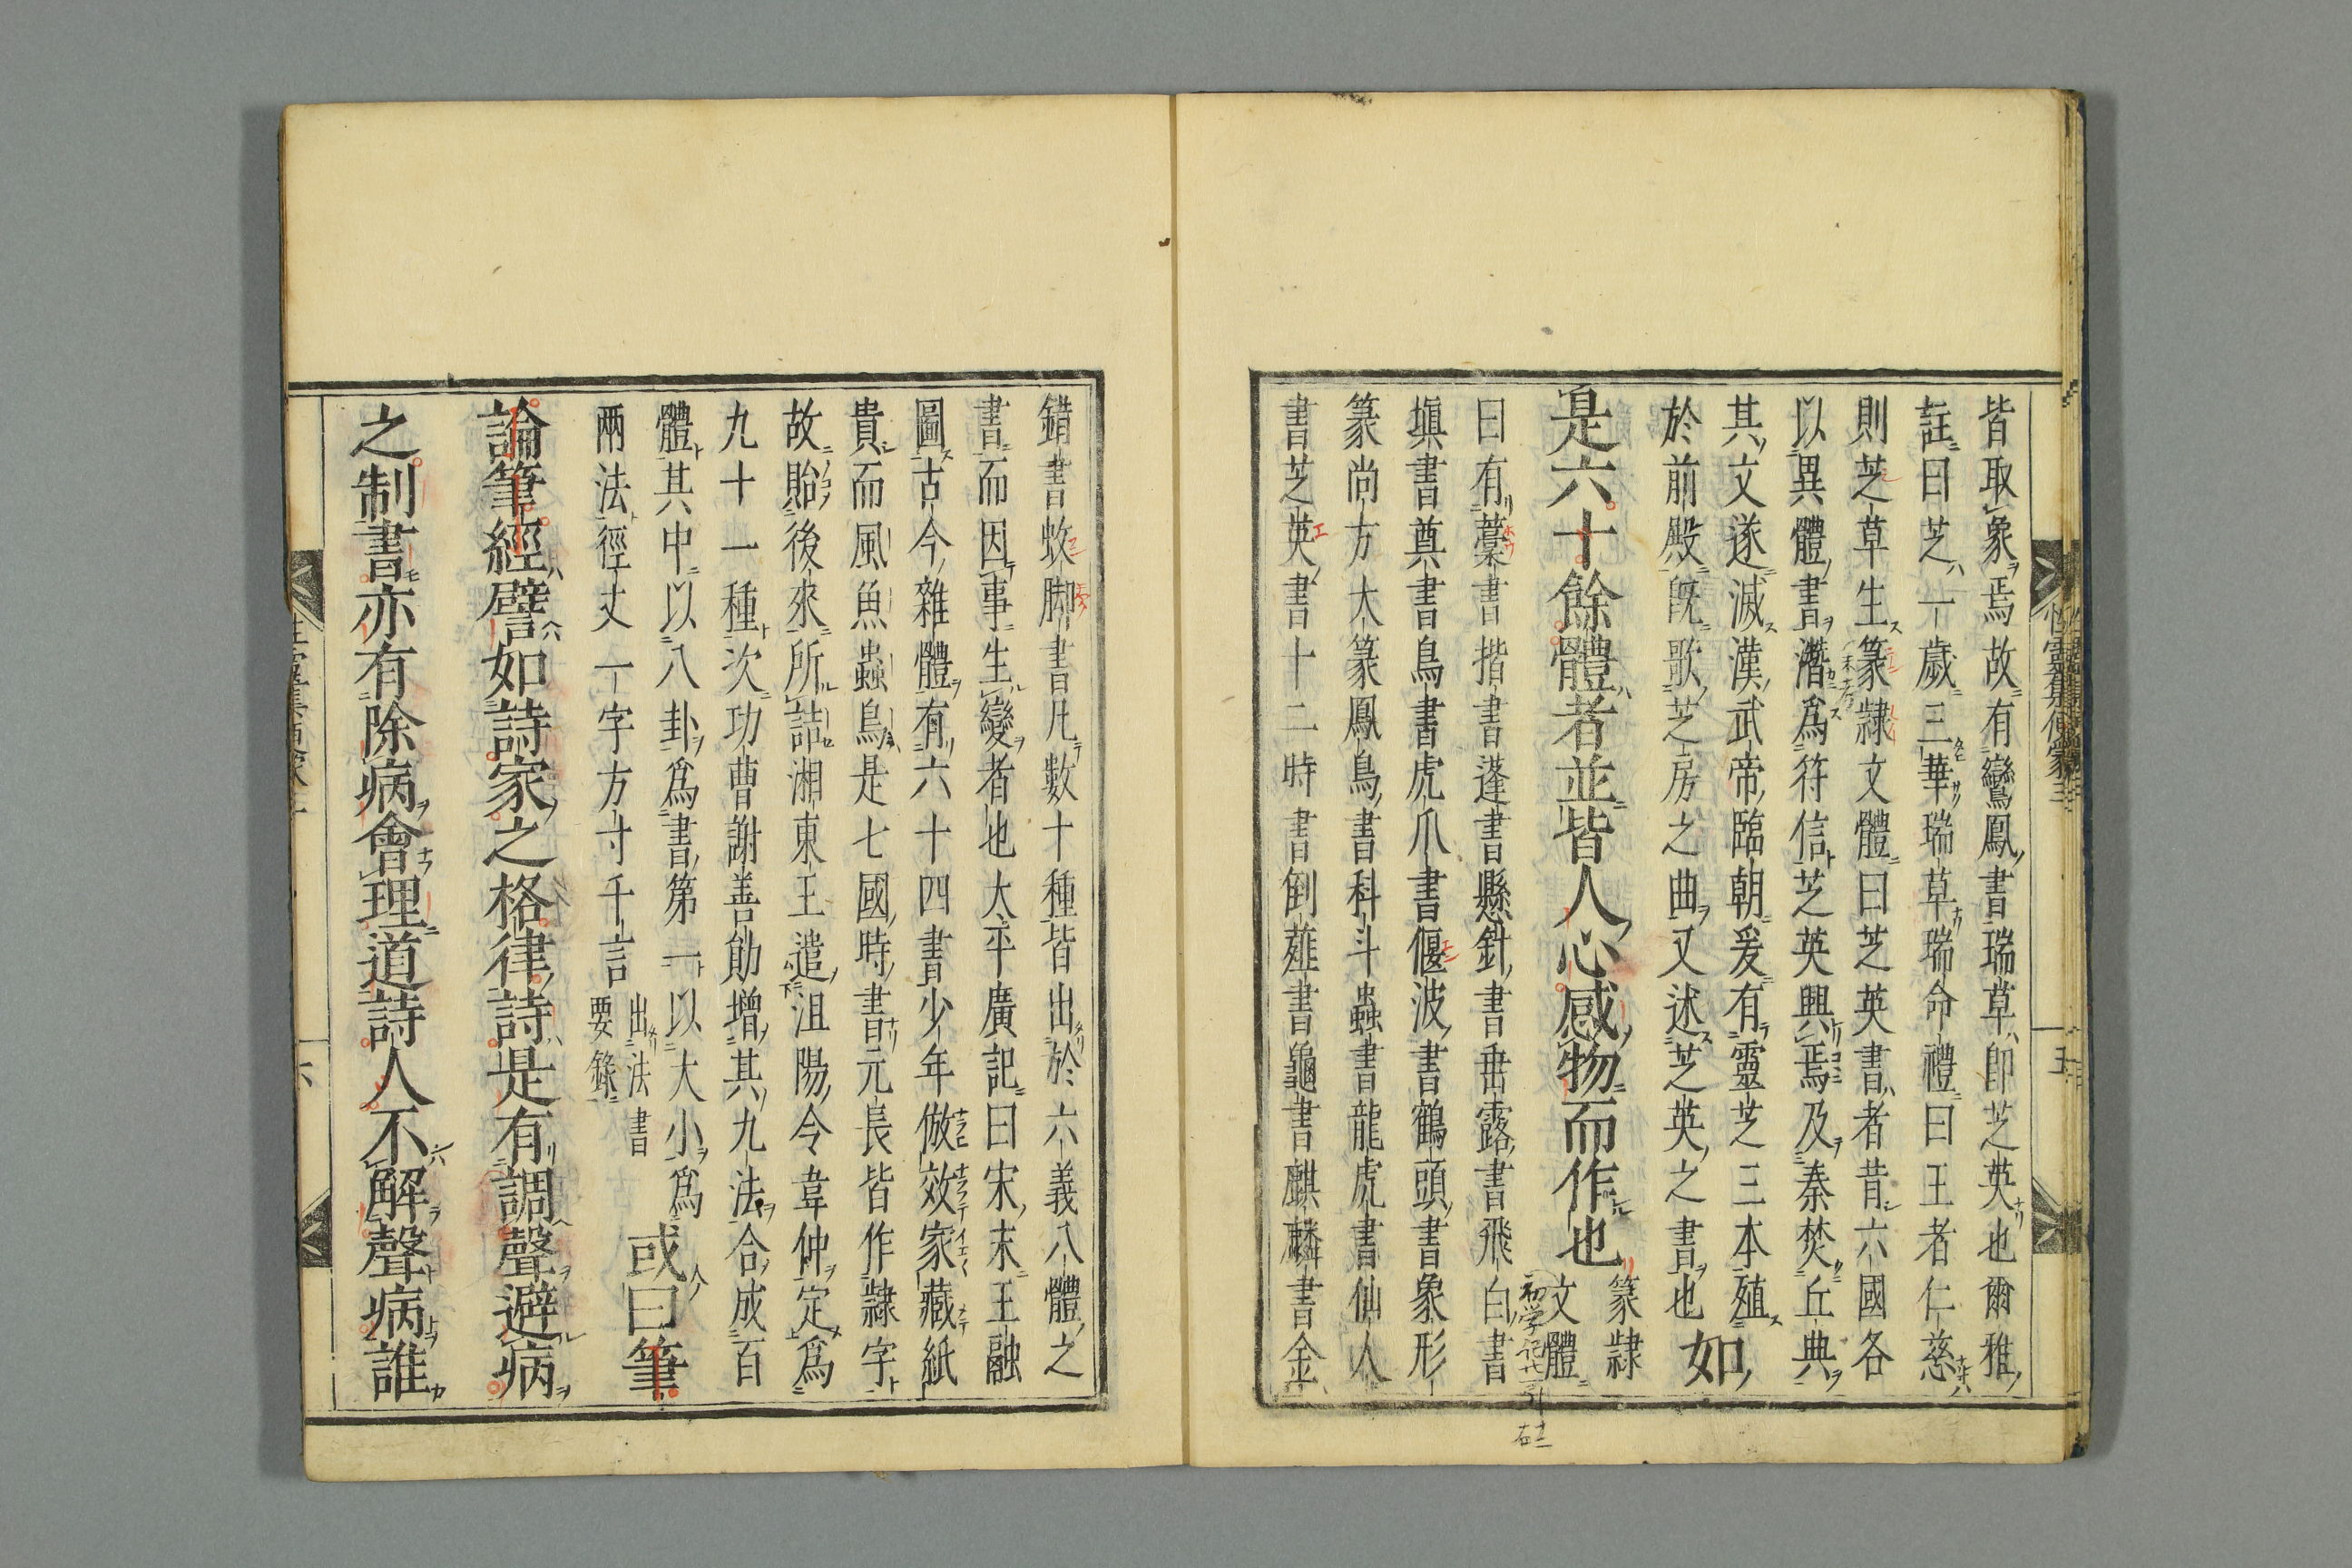 皆取象焉故有鸞鳳書瑞草即芝英也爾雅
註曰芝一歲三華瑞草瑞命禮曰王者仁慈
則芝草生篆隷文體曰芝英書者昔六國各
以異體書潛爲符信芝英興焉及秦焚丘典
其文遂滅漢武帝臨朝爰有靈芝三本殖
於前殿旣歌芝房之曲又述芝英之書也如
是六十餘體者並皆人心感物而作也篆隷
文體
曰有藁書揩書蓬書懸針書垂露書飛白書
塡書奠書鳥書虎爪書偃波書鶴頭書象形
篆尚方大篆鳳鳥書科斗蟲書龍虎書仙人
書芝英書十二時書倒薤書龜書麒麟書金
錯書蚊脚書凡數十種皆出於六義八體之
書而因事生變者也大平廣記曰宋末王融
圖古今雜體有六十四書少年倣效家藏紙
貴而風魚蟲鳥是七國時書元長皆作隷字
故貽後來所詰湘東王遣沮陽令韋仲定爲
九十一種次功曹謝善勛增其九法合成百
體其中以八卦爲書第一以大小爲
兩法徑丈一字方寸千言出法書
要錄
或曰筆
論筆經譬如詩家之格律詩是有調聲避病
之制書亦有除病會理道詩人不解聲病誰
性靈集便蒙
五
六